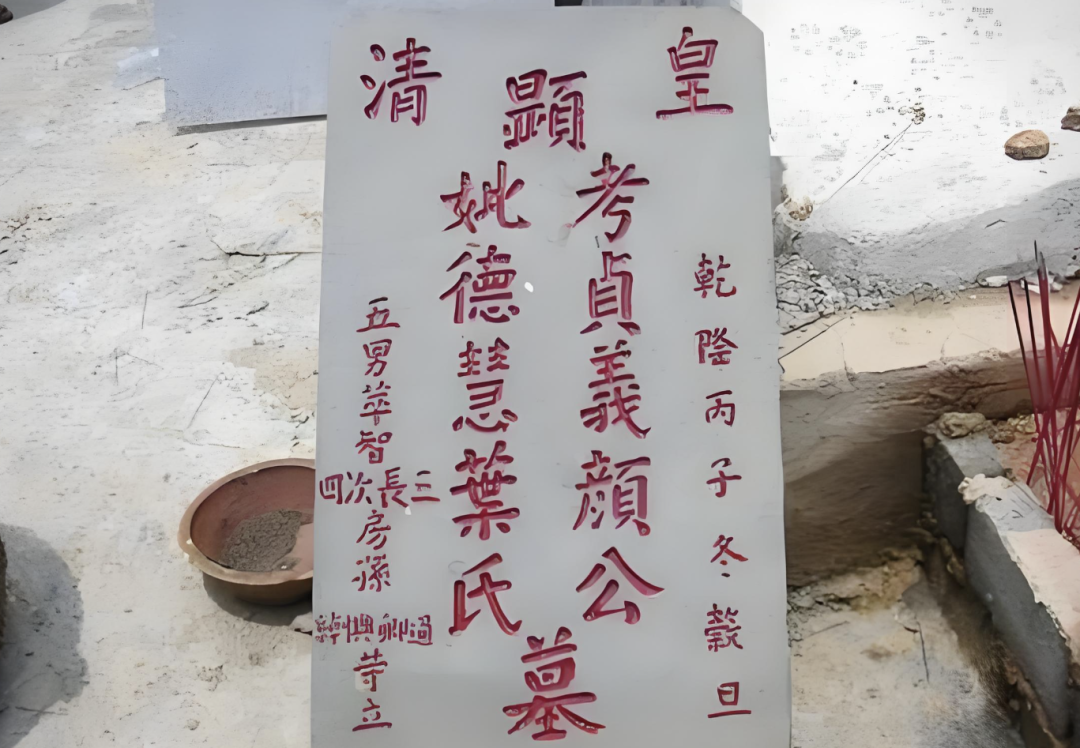 皇清
乾隆丙子冬穀旦
顯
考貞義顔公
妣德慧葉氏
墓
五男萃智
三長次四
房孫
等立